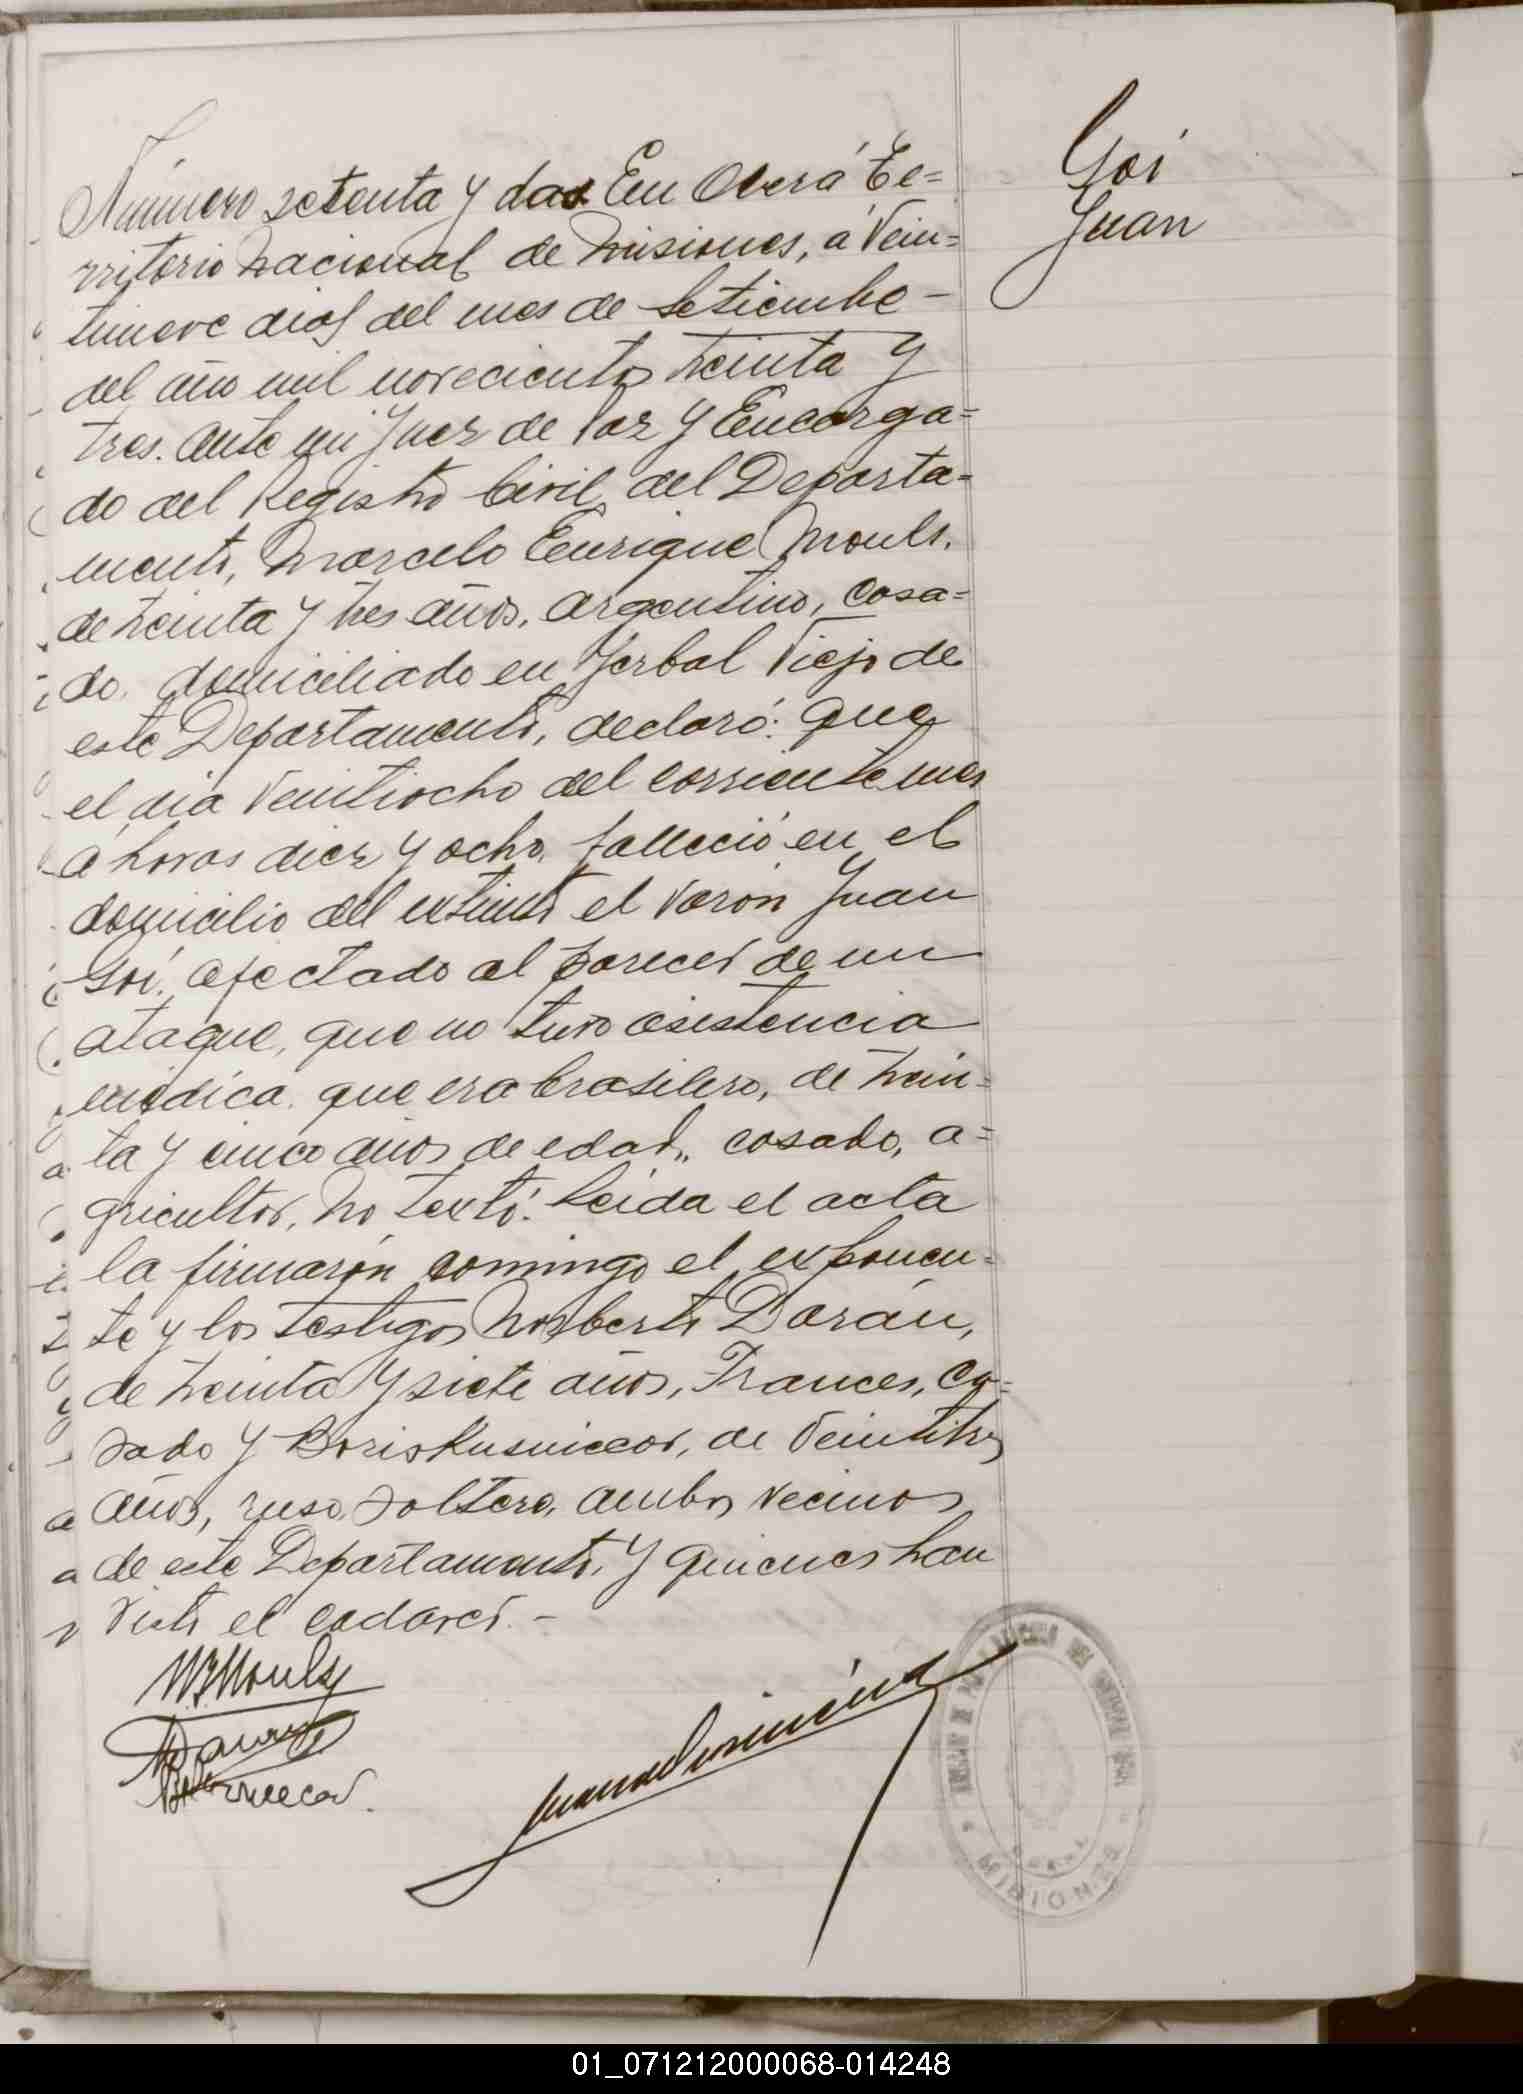 Goi
Juan
Número setenta y dos. En Oberá Te=
rritorio Nacional de Misiones, á Vein=
tinueve dias del mes de Setiembre -
del año mil novecientos treinta y
tres. ante mi Juez de Paz y Encarga=
do del Registro Civil del Departa=
mento, Marcelo Enrique Mouly,
de treinta y tres años, argentino, casa=
do, domiciliado en Yerbal Viejo de
este Departamento, declaró: que
el dia Veintiocho del corriente mes
á horas diez y ocho, falleció en el
domicilio del extinto el varón Juan
Goi. afectado al parecer de un
ataque, que no tuvo asistencia
médica. que era brasilero, de trein=
ta y cinco años de edad, casado, a=
gricultor, No testó. Leida el acta
la firmarón conmingo el exponen=
te y los testigos Norberto Darán,
de treinta y siete años, Frances, ca=
sado y Boris Kusniecor, de Veintitres
años, ruso, soltero, ambos vecinos
de este Departamento, y quienes han
visto el cadaver. -
M. E. Mouly
MISIONES
01_071212000068-014248